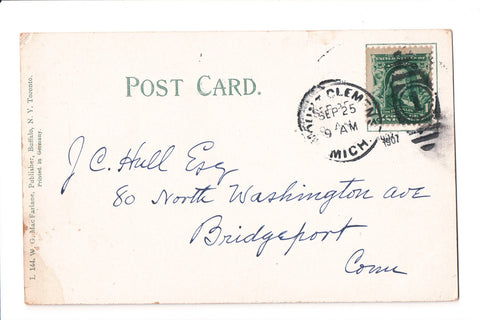 POST CARD.
MOUNT CLEMENS
SEP 25
9 AM
MICH.
1907
J. C. Hull Esq
80 North Washington ave
Bridgeport
Conn
I. 144. W. G. MacFarlane, Publisher, Buffalo, N. Y. Toronto.
Printed in Germany.